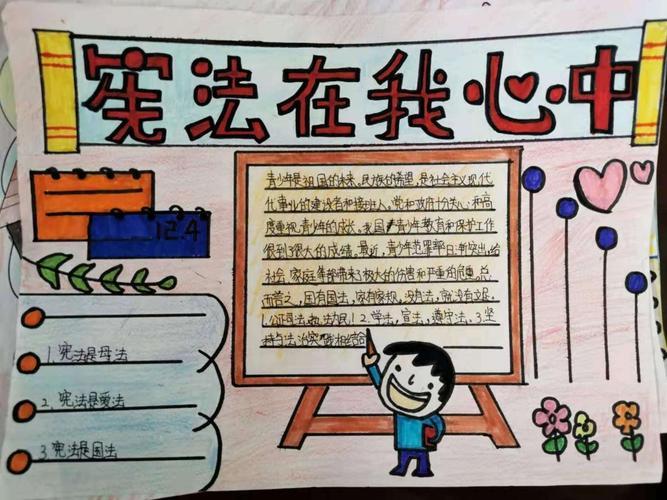 宪法在我心中
12.4
青少年是祖国的未来、民族的希望,是社会主义现代
代事业的建设者和接班人、党和政府十分关心和高
度重视青少年的成长。我国青少年教育和保护工作
得到了很大的成绩。最近,青少年犯罪帮日新突出,给
社会、家庭等都带来了极大的伤害和严重的危害。总
而言之,国有国法,家有家规,没有法,就没有
1.公正司法 法为民!2.学法,宣法,遵守法、3.坚
持与法治实践相结合
1.宪法是母法
2.宪法是爱法
3.宪法是国法